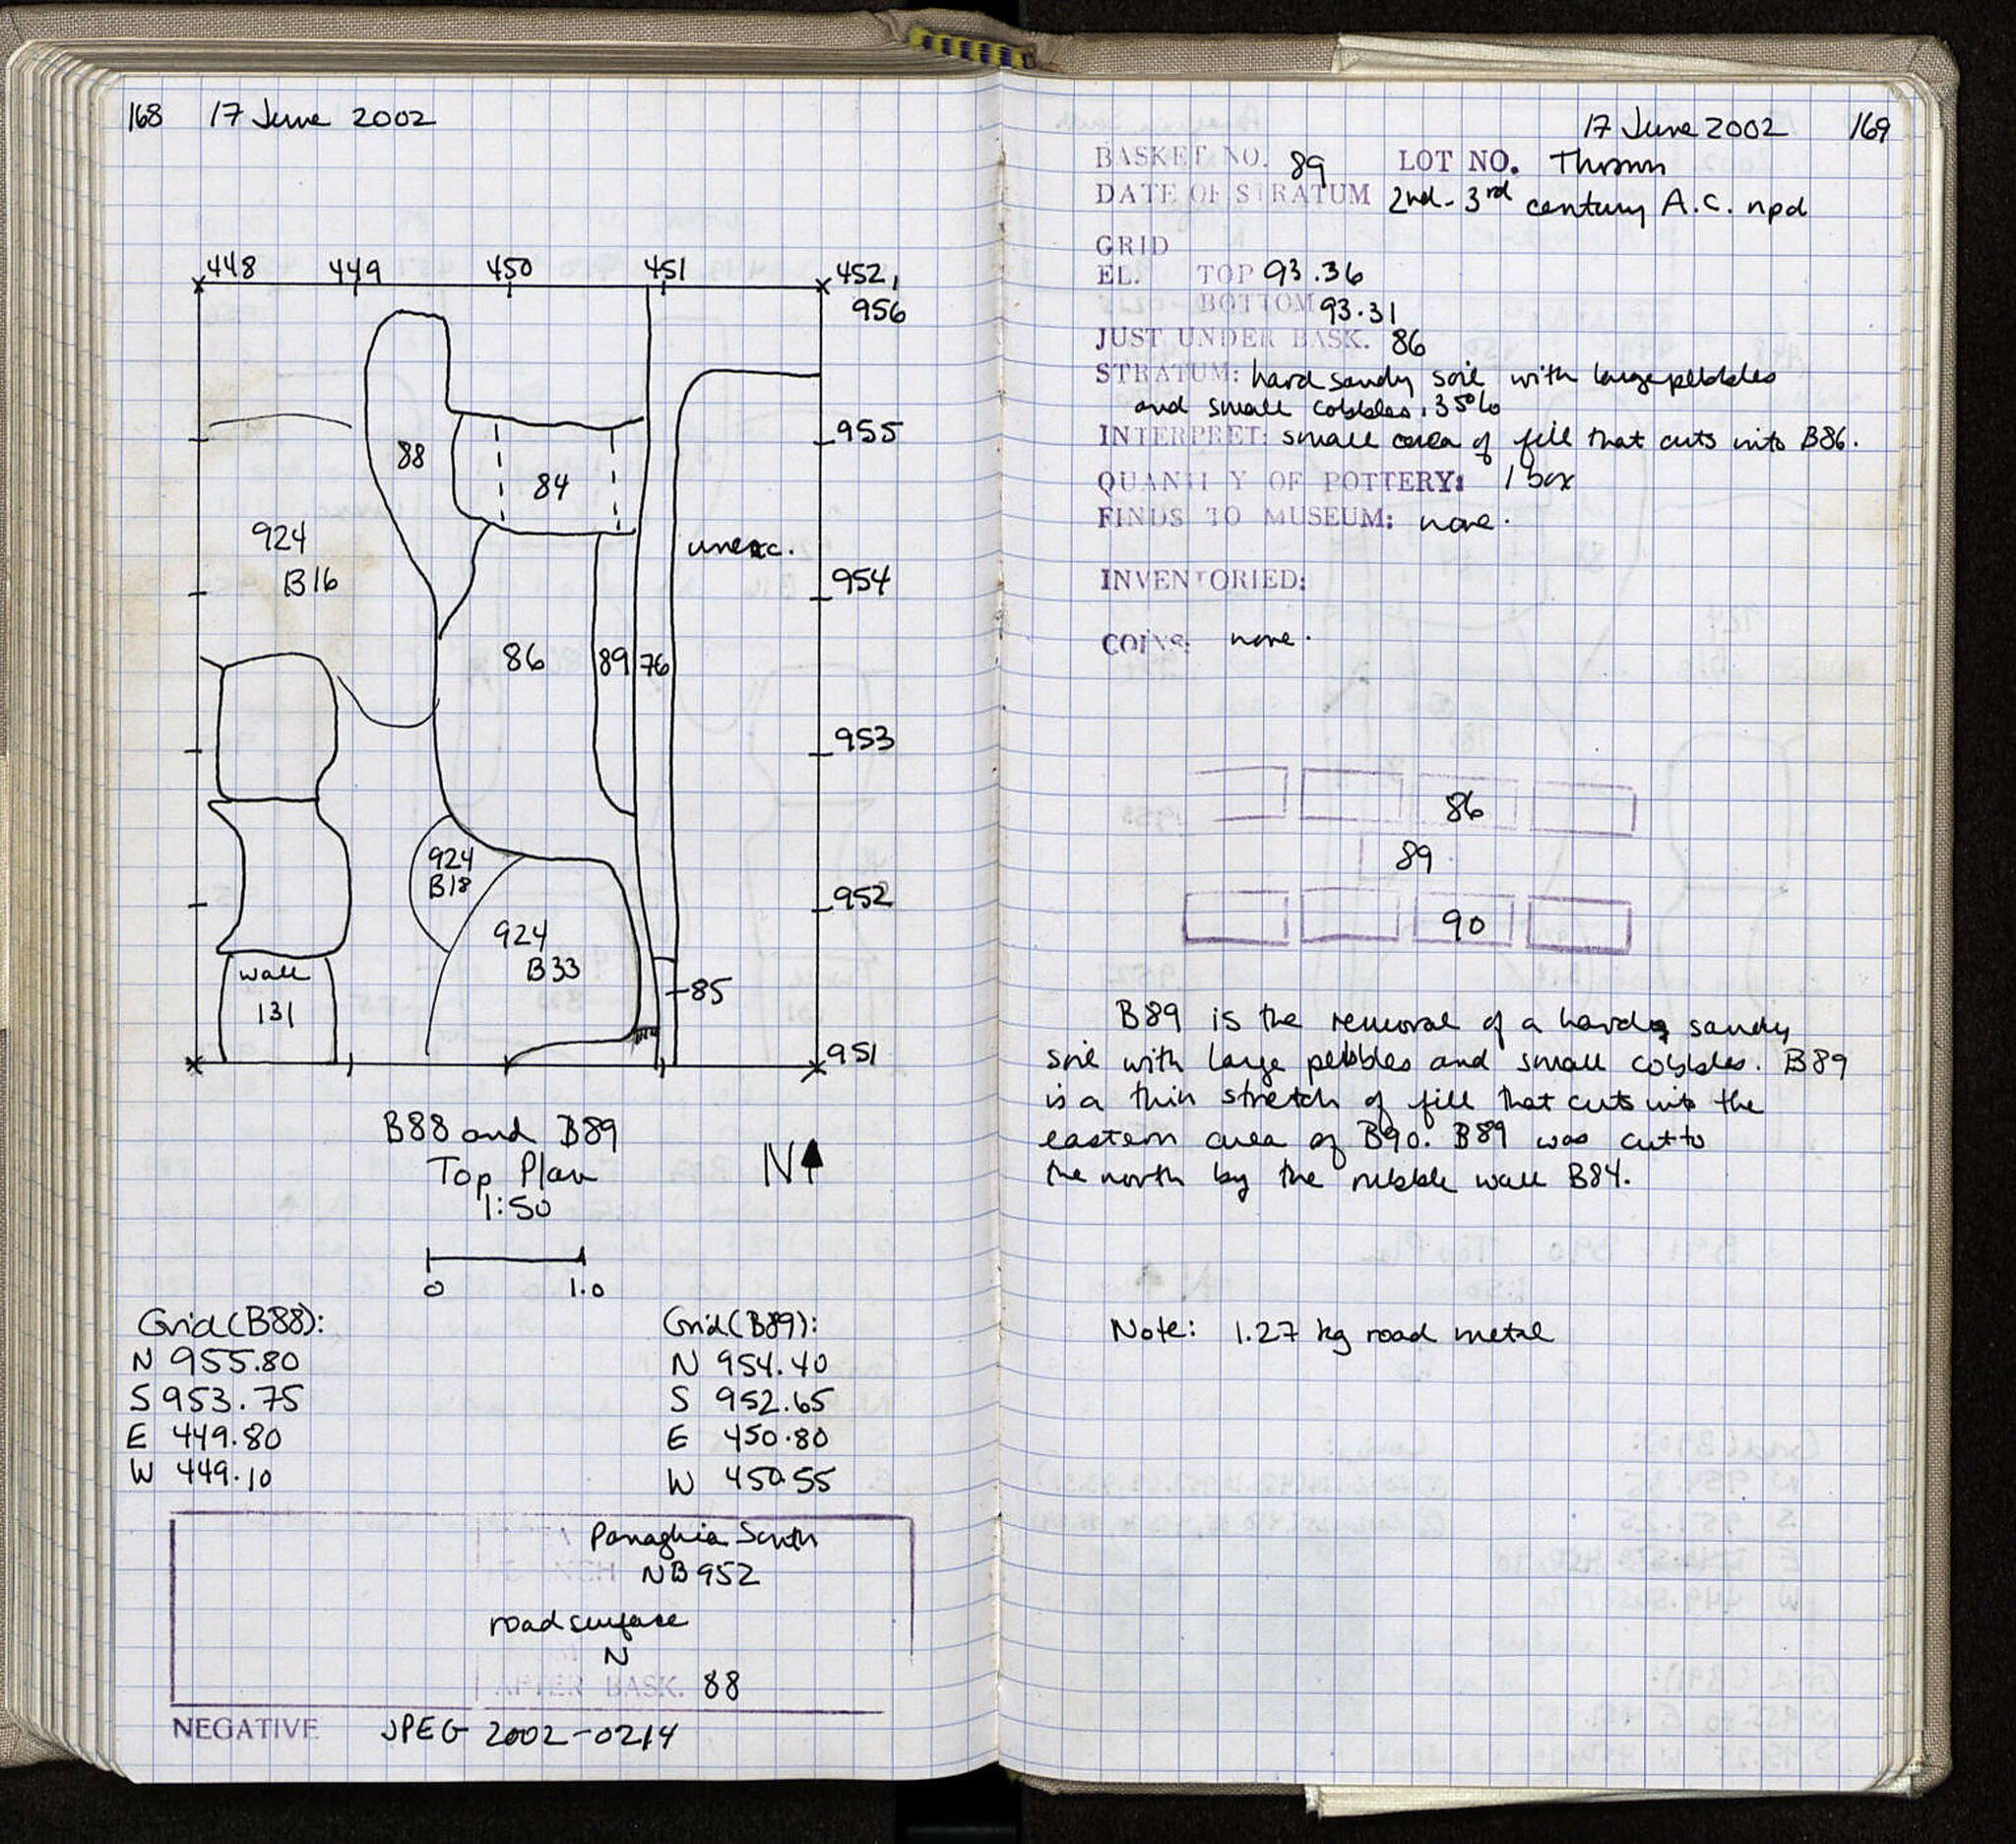 168 17 June 2002
448 449 450 451 452,
956
955
88
84
924
B16
unexc.
954
86 89 76
953
924
B18
952
924
B33
wall
131
85
951
B88 and B89
Top Plan
1:50
N
0 1.0
Grid (B88):
N 955.80
S 953.75
E 449.80
W 449.10
Grid (B89):
N 954.40
S 952.65
E 450.80
W 450.55
Panaghia South
NB 952
road surface
N
AFTER BASK. 88
NEGATIVE JPEG 2002-0214
17 June 2002 169
BASKET NO. 89 LOT NO. Thrown
DATE OF STRATUM 2nd-3rd century A.C. npd
GRID
EL. TOP 93.36
BOTTOM 93.31
JUST UNDER BASK. 86
STRATUM: hard sandy soil with large pebbles
and small cobbles, 35%
INTERPRET: small area of fill that cuts into B86.
QUANTITY OF POTTERY: 1 box
FINDS TO MUSEUM: none.
INVENTORIED:
COINS: none.
86
89
90
B89 is the removal of a hard sandy
soil with large pebbles and small cobbles. B89
is a thin stretch of fill that cuts into the
eastern area of B90. B89 was cut to
the north by the rubble wall B84.
Note: 1.27 kg road metal